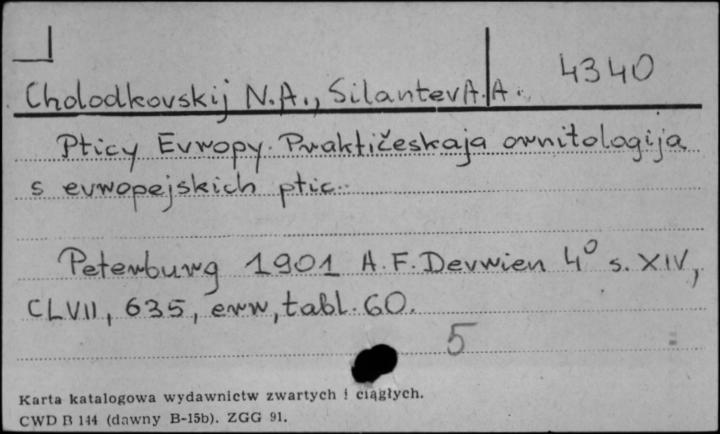 4340
Cholodkovskij N.A., Silantev A.A.
Pticy Evropy. Praktičeskaja ornitologija
s evropejskich ptic.
Peterburg 1901 A.F. Devrien 4° s. XIV,
CLVII, 635, err, tabl. 60.
5
Karta katalogowa wydawnictw zwartych i ciągłych.
CWD B 144 (dawny B-15b). ZGG 91.